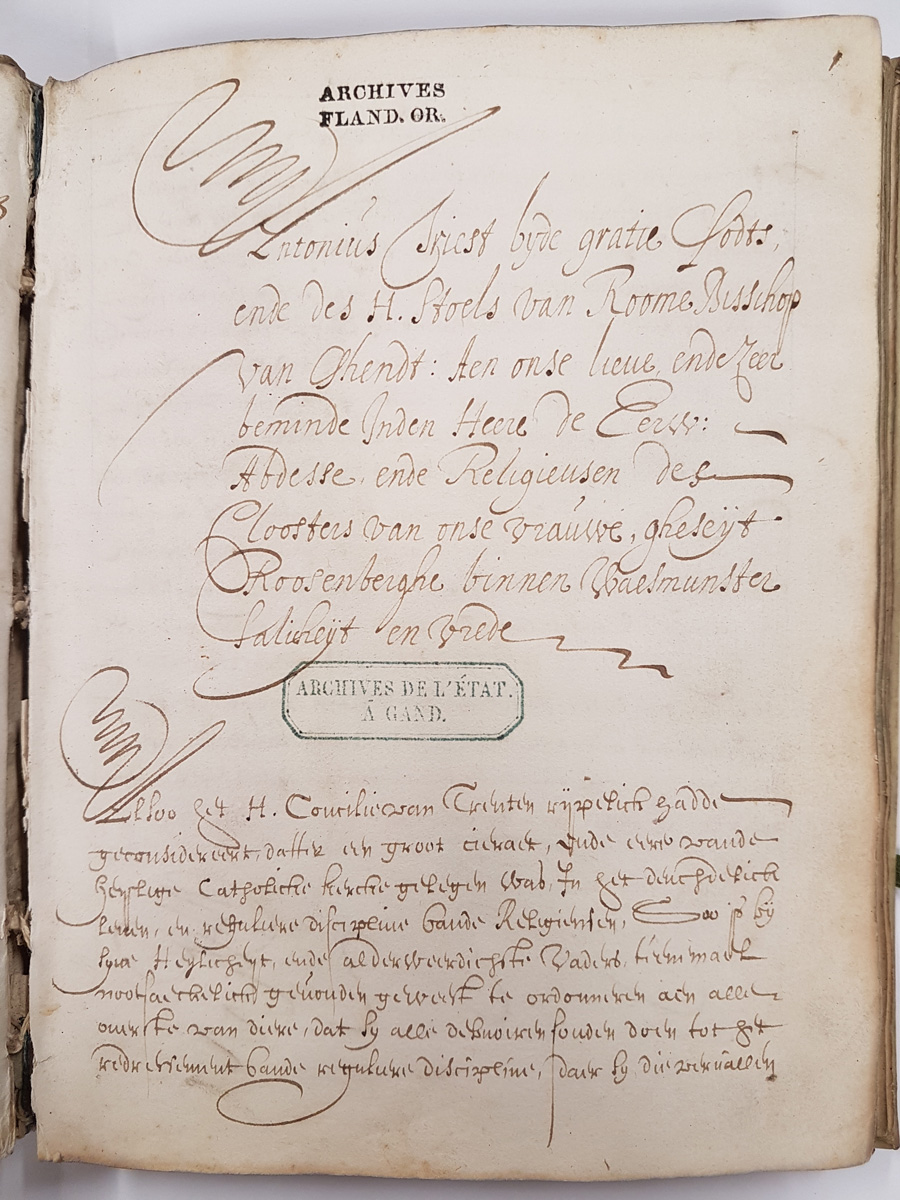 ARCHIVES
FLAND. OR.
Antonius Triest byde gratie Godts,
ende des H. Stoels van Roome Bisschop
van Ghendt: Aen onse lieve, ende zeer
beminde Inden Heere de Eerw:
Abdesse, ende Religieusen des
Cloosters van onse vrauwe, gheseÿt
Roosenberghe binnen Waesmunster
Salicheÿt en vrede
ARCHIVES DE L'ÉTAT.
À GAND.
Alsoo het H. Concilie van Trenten rÿpelick hadde
geconsidereert, datter een groot cieraet, ende eere vande
heylige Catholicke kercke gelegen was, In het deuchdelick
leven, en reguliere discipline vande Religieusen, Soo is bÿ
syne Heylicheyt, ende alderweerdichste Vaders
nootsaeckelick gevonden geweest te ordonneren aen alle
overste van diere, dat sy alle debvoiren souden doen tot het
redressement vande reguliere discipline, daer sy die vervallen